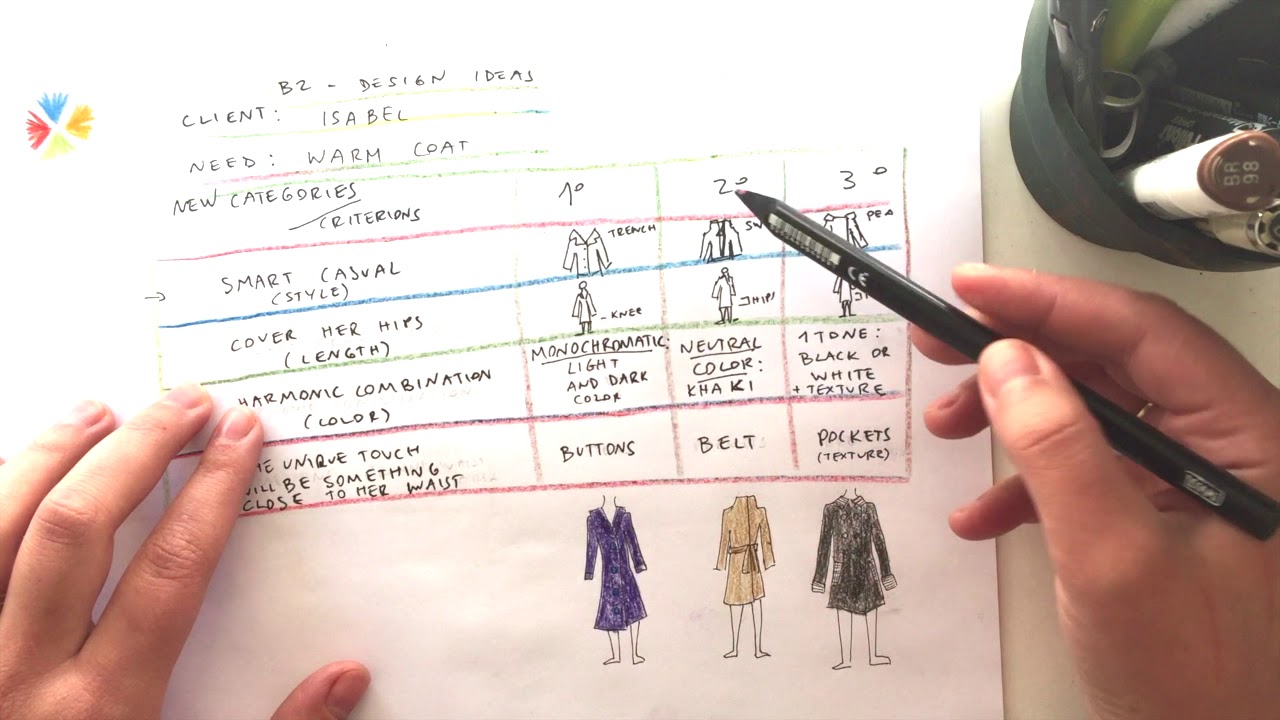 B2 - DESIGN IDEAS
CLIENT: ISABEL
NEED: WARM COAT
NEW CATEGORIES
CRITERIONS
1º
2º
3º
SMART CASUAL
(STYLE)
TRENCH
PEA
COVER HER HIPS
(LENGTH)
- KNEE
HIPS
HARMONIC COMBINATION
(COLOR)
MONOCHROMATIC:
LIGHT
AND DARK
COLOR
NEUTRAL
COLOR:
KHAKI
1 TONE:
BLACK OR
WHITE
+ TEXTURE
UNIQUE TOUCH
BE SOMETHING
CLOSE TO HER WAIST
BUTTONS
BELT
POCKETS
(TEXTURE)
CE
BR
98